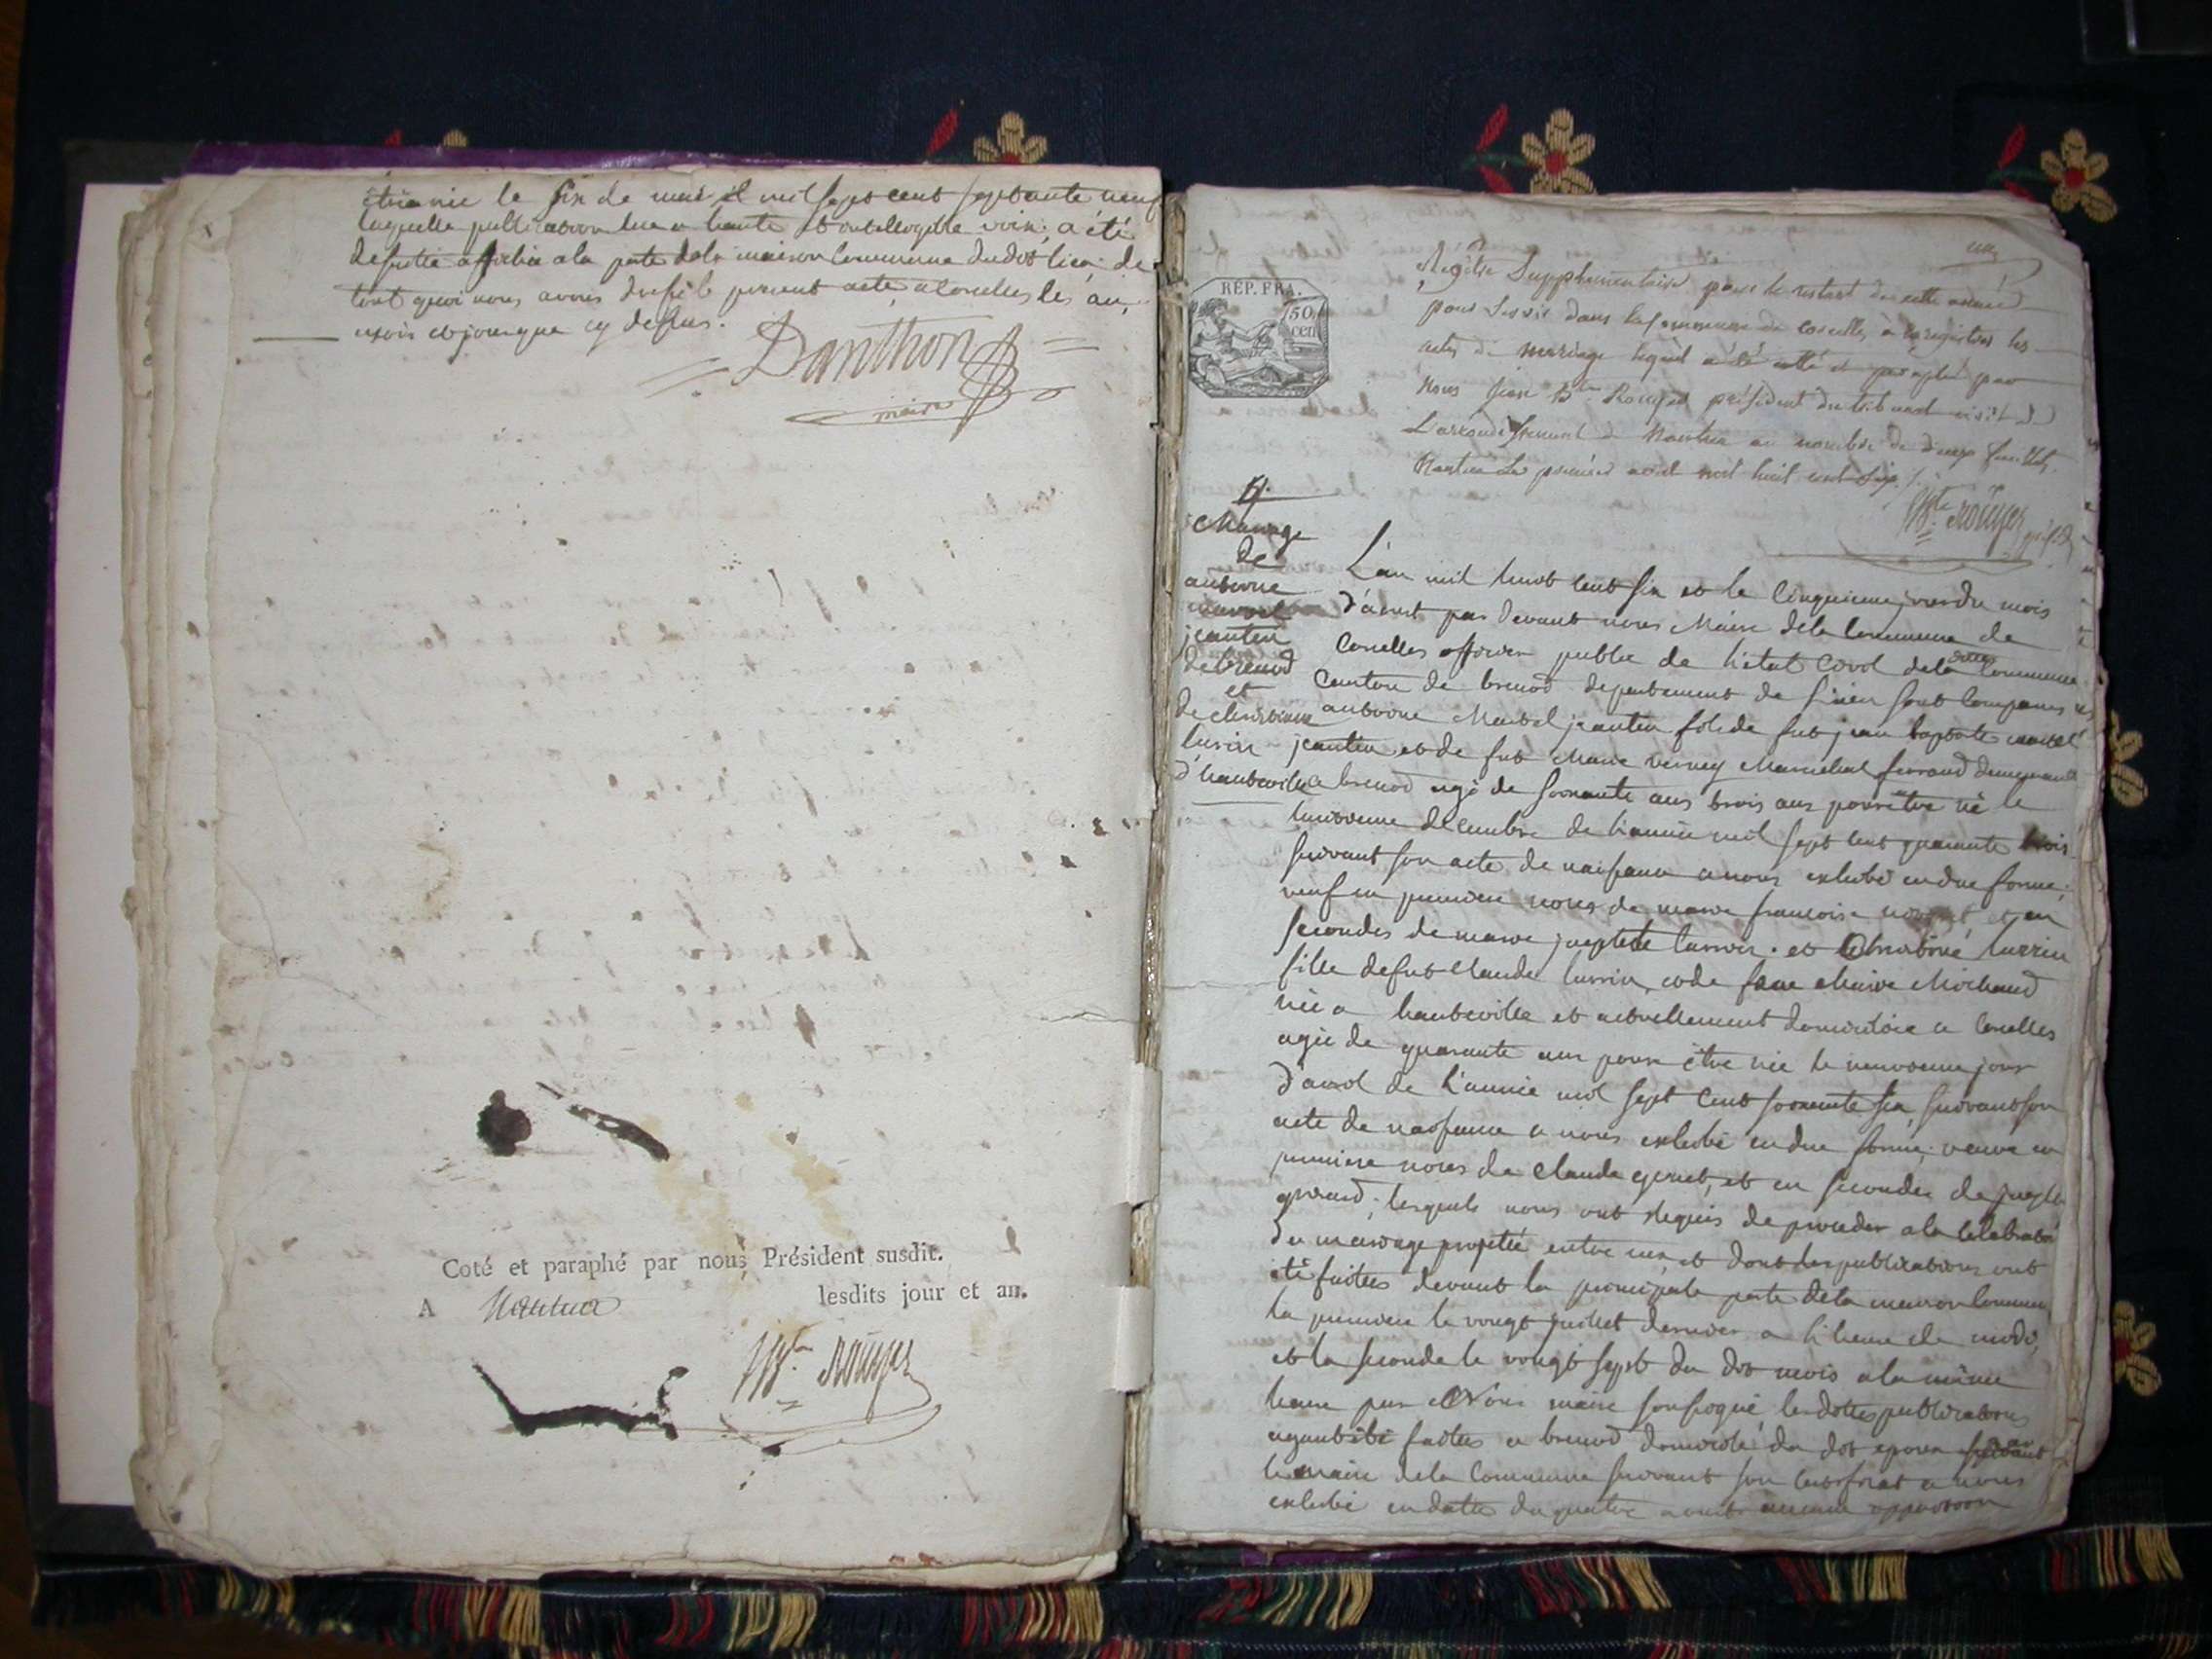 étienne le six de mai mil sept cent septante neuf
laquelle publication lue a haute et intelligible voix, a été
de suitte affichée a la porte dela maison Commune dudit lieu, de
tout quoi nous avons dressé le present acte, a Corcelles les an,
mois et jour que cy dessus.
Danthon
maire
Coté et paraphé par nous Président susdit.
A Nantua lesdits jour et an.
J B.te Rouyer
un
REP. FRA.
50
cen
Régitre Supplémentaire pour le restant de cette année
pour servir dans la commune de Corcelles à enregistrer les
actes de mariage lequel a été cotté et paraphé par
Nous Jean B.te Rouyer président du tribunal civil de
L'arrondissement de Nantua au nombre de deux feuillets.
Nantua Le premier août mil huit cent six
J B.te Rouyer présid
Mariage
de
antoine
martel
jeantin
de brenod
et
de christine
lurin
d'hauteville
L'an mil huit cent six et le Cinquieme jour du mois
d'aout par devant nous Maire dela Commune de
Corcelles officier public de l'état Civil dela ditte Commune
Canton de brenod departement de l'ain sont Comparus
antoine Martel jeantin fils de fut jean baptiste martel
jeantin et de fut Marie verney Marechal ferrand demeurant
a brenod agé de soixante ans trois ans pour être né le
huitieme decembre de l'année mil sept cent quarante trois
suivant son acte de naissance a nous exhibé en due forme,
veuf en premiere noces de marie francoise et en
secondes de marie lurin. et Christine lurrin
fille de fut Claude lurrin, et de feue Marie Michaud
née a hauteville et actuellement domiciliée a Corcelles
agée de quarante ans pour être née le neuvieme jour
d'avril de l'année mil sept Cent soixante six, suivant son
acte de naissance a nous exhibé en due forme, veuve en
premiere noces de Claude et en secondes de
girard, lesquels nous ont requis de proceder a la Celebration
du mariage projetté entre eux, et dont les publications ont
été faittes devant la principale porte dela maison Commune,
la premiere le vingt juillet dernier a l'heure de midi,
et la seconde le vingt sept du dit mois a la même
heure par Nous maire soussigné, les dittes publications
ayant été faittes a brenod domicile du dit epoux
le maire dela Commune suivant son Certificat a nous
exhibé en datte du quatre aout aucune opposition